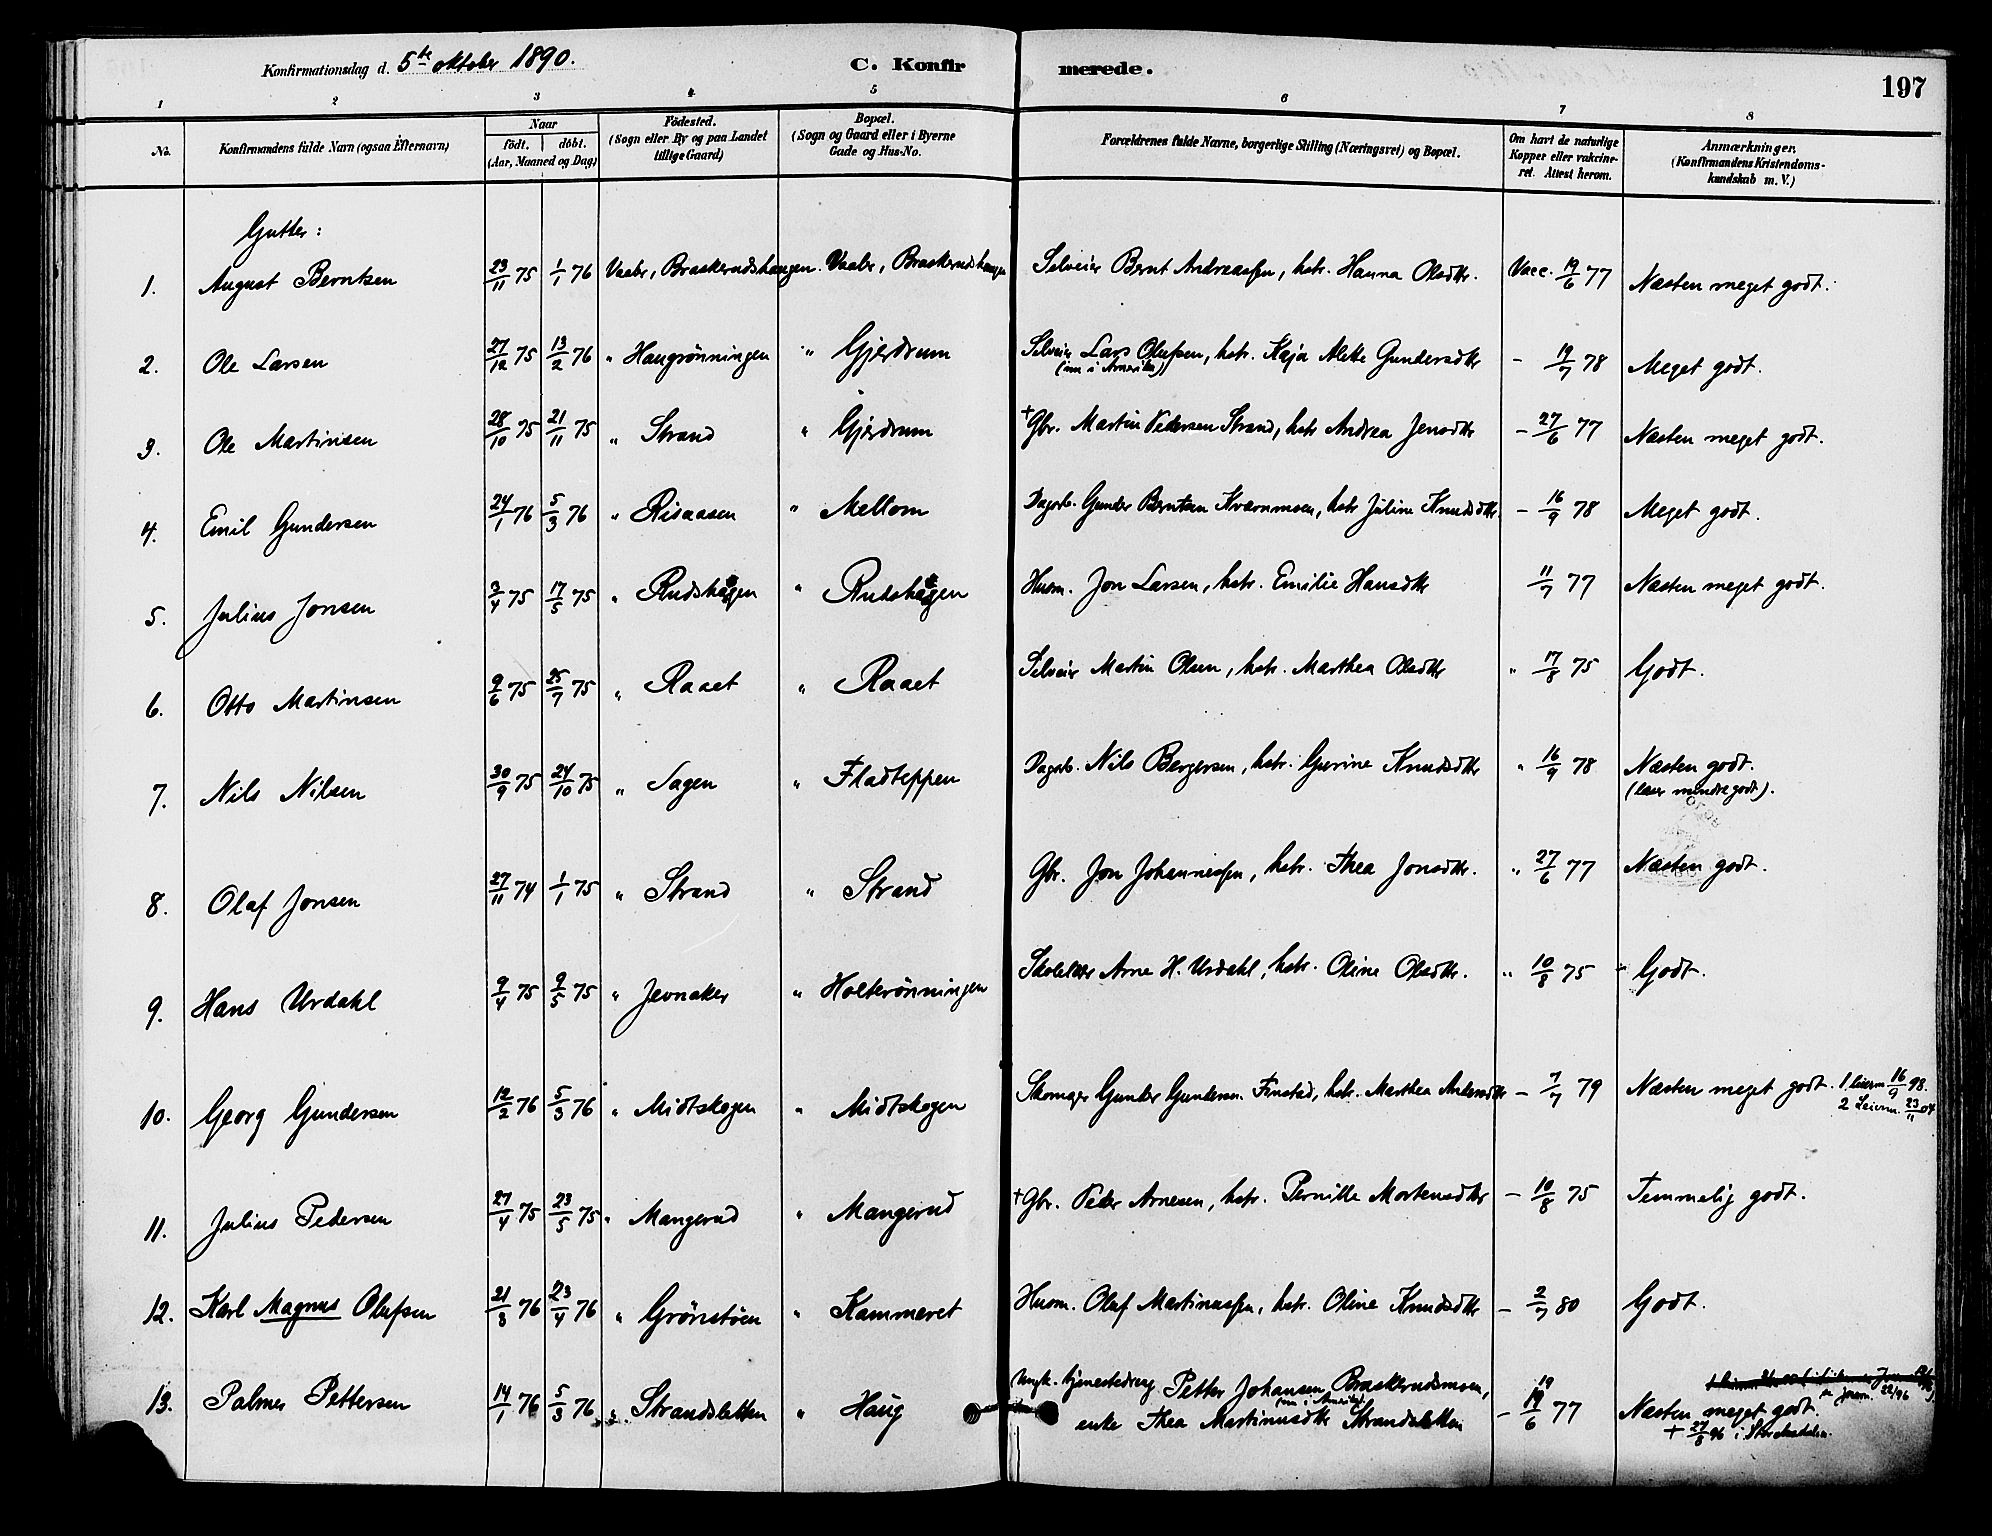 Konfirmationsdag d. 5te oktober 1890. C. Konfirmerede. 197
1 2 3 4 5 6 7 8
No. Konfirmandens fulde Navn (ogsaa Efternavn) Naar födt. döbt. (Aar, Maaned og Dag) Födested. (Sogn eller By og paa Landet tillige Gaard) Bopæl. (Sogn og Gaard eller i Byerne Gade og Hus-No. Forældrenes fulde Navne, borgerlige Stilling (Næringsvei) og Bopæl. Om havt de naturlige Kopper eller vakcineret. Attest herom. Anmærkninger. (Konfirmandens Kristendomskundskab m. V.)
Gutter:
1. August Berntsen 23/11 75 1/1 76 Vaaler, Braskerudshaugen. Vaaler, Braskerudshaugen Selveier Bernt Andreassen, hstr. Hanna Olsdtr. Vacc. 19/6 77 Næsten meget godt.
2. Ole Larsen 27/12 75 13/2 76 " Haugrönningen " Gjerdrum Selveier Lars Olufsen, hstr. Kaja Alette Gundersdtr - 19/7 78 Meget godt.
(nu i Amerika)
3. Ole Martinsen 28/10 75 21/11 75 " Strand " Gjerdrum + Gbr. Martin Pedersen Strand, hstr Andrea Jensdtr - 27/6 77 Næsten meget godt.
4. Emil Gundersen 24/1 76 5/3 76 " Risaasen " Mellom Dagarb. Gunder Berntsen Kværnmoen, hstr Juline Knudsdtr. - 16/9 78 Meget godt.
5. Julius Jonsen 3/4 75 17/5 75 " Rudshagen " Rudshagen Husm. Jon Larsen, hstr. Emilie Hansdtr 11/7 77 Næsten meget godt.
6. Otto Martinsen 9/6 75 25/7 75 " Raaet " Raaet Selveier Martin Olsen, hstr. Marthea Olsdtr " 17/8 75 Godt.
7. Nils Nilsen 30/9 75 24/10 75 " Sagen " Fladteppen Dagarb. Nils Bergersen, hstr. Gurine Knudsdtr " 16/9 78 Næsten godt.
(læser mindre godt).
8. Olaf Jonsen 27/11 74 1/1 75 " Strand " Strand Gbr. Jon Johannessen, hstr. Thea Jonsdtr. " 27/6 77 Næsten godt.
9. Hans Urdahl 9/4 75 9/5 75 " Jevnaker " Holterönningen Skolelærer Arne H. Urdahl, hstr. Oline Olsdtr. " 10/8 75 - Godt.
10. Georg Gundersen 12/2 76 5/3 76 " Midtskogen " Midtskogen Skomager Gunder Gundersen Finstad, hstr. Marthea Andersdtr - 7/7 79 Næsten meget godt. 1 leierm 16/9 98.
2 Leierm. 23/11 04
11. Julius Pedersen 27/4 75 23/5 75 " Mangerud " Mangerud + Gbr. Peder Arnesen, hstr. Pernille Mortensdtr - 10/8 75 Temmelig godt.
12. Karl Magnus Olufsen 21/3 76 23/4 76 " Grönstöen " Kammeret Husm. Oluf Martinussen, hstr. Oline Knudsdtr - 2/7 80 Godt.
13. Palmer Pettersen 14/1 76 5/3 76 " Strandsletten " Haug Ungk. tjenestedreng Petter Johansen Braskerudsmoen,
(nu i Amerika)
enke Thea Martinusdtr Strandsletten - 19/6 77 Næsten meget godt.
+ 27/8 96 i